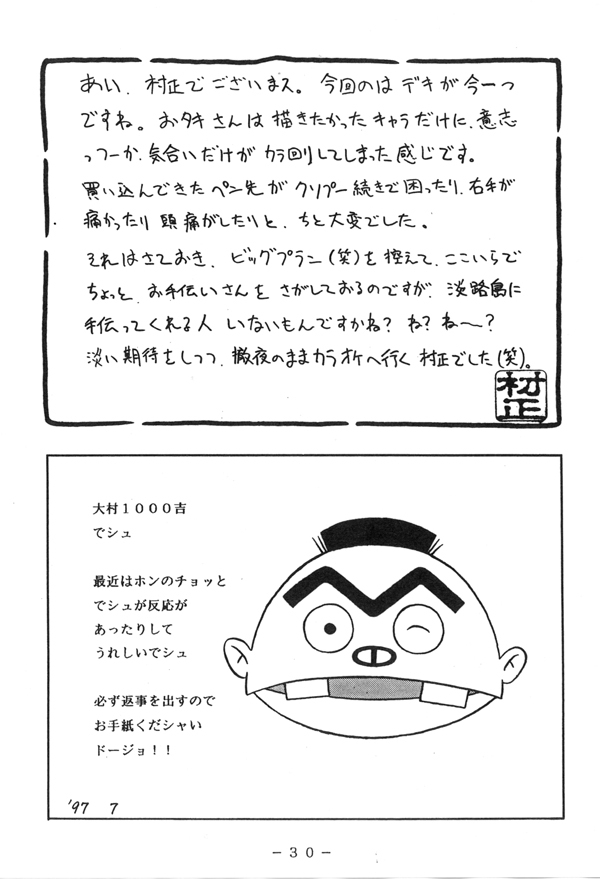 あい、村正でございまス。今回のは デキが今一つ
ですね。おタキさんは 描きたかったキャラだけに、意志
っつーか、気合いだけが カラ回りしてしまった感じです。
買い込んできたペン先が クリプー続きで困ったり、右手が
痛かったり 頭痛がしたりと、ちと大変でした。
それはさておき、ビッグプラン(笑)を控えて、ここいらで
ちょっと、お手伝いさんを さがしておるのですが、淡路島に
手伝ってくれる人 いないもんですかね？ ね？ ね〜？
淡い期待をしつつ、撤夜のままカラオケへ行く 村正でした(笑)。
村正
大村１０００吉
でシュ
最近はホンのチョッと
でシュが反応が
あったりして
うれしいでシュ
必ず返事を出すので
お手紙くだシャい
ドージョ！！
'97 7
－３０－